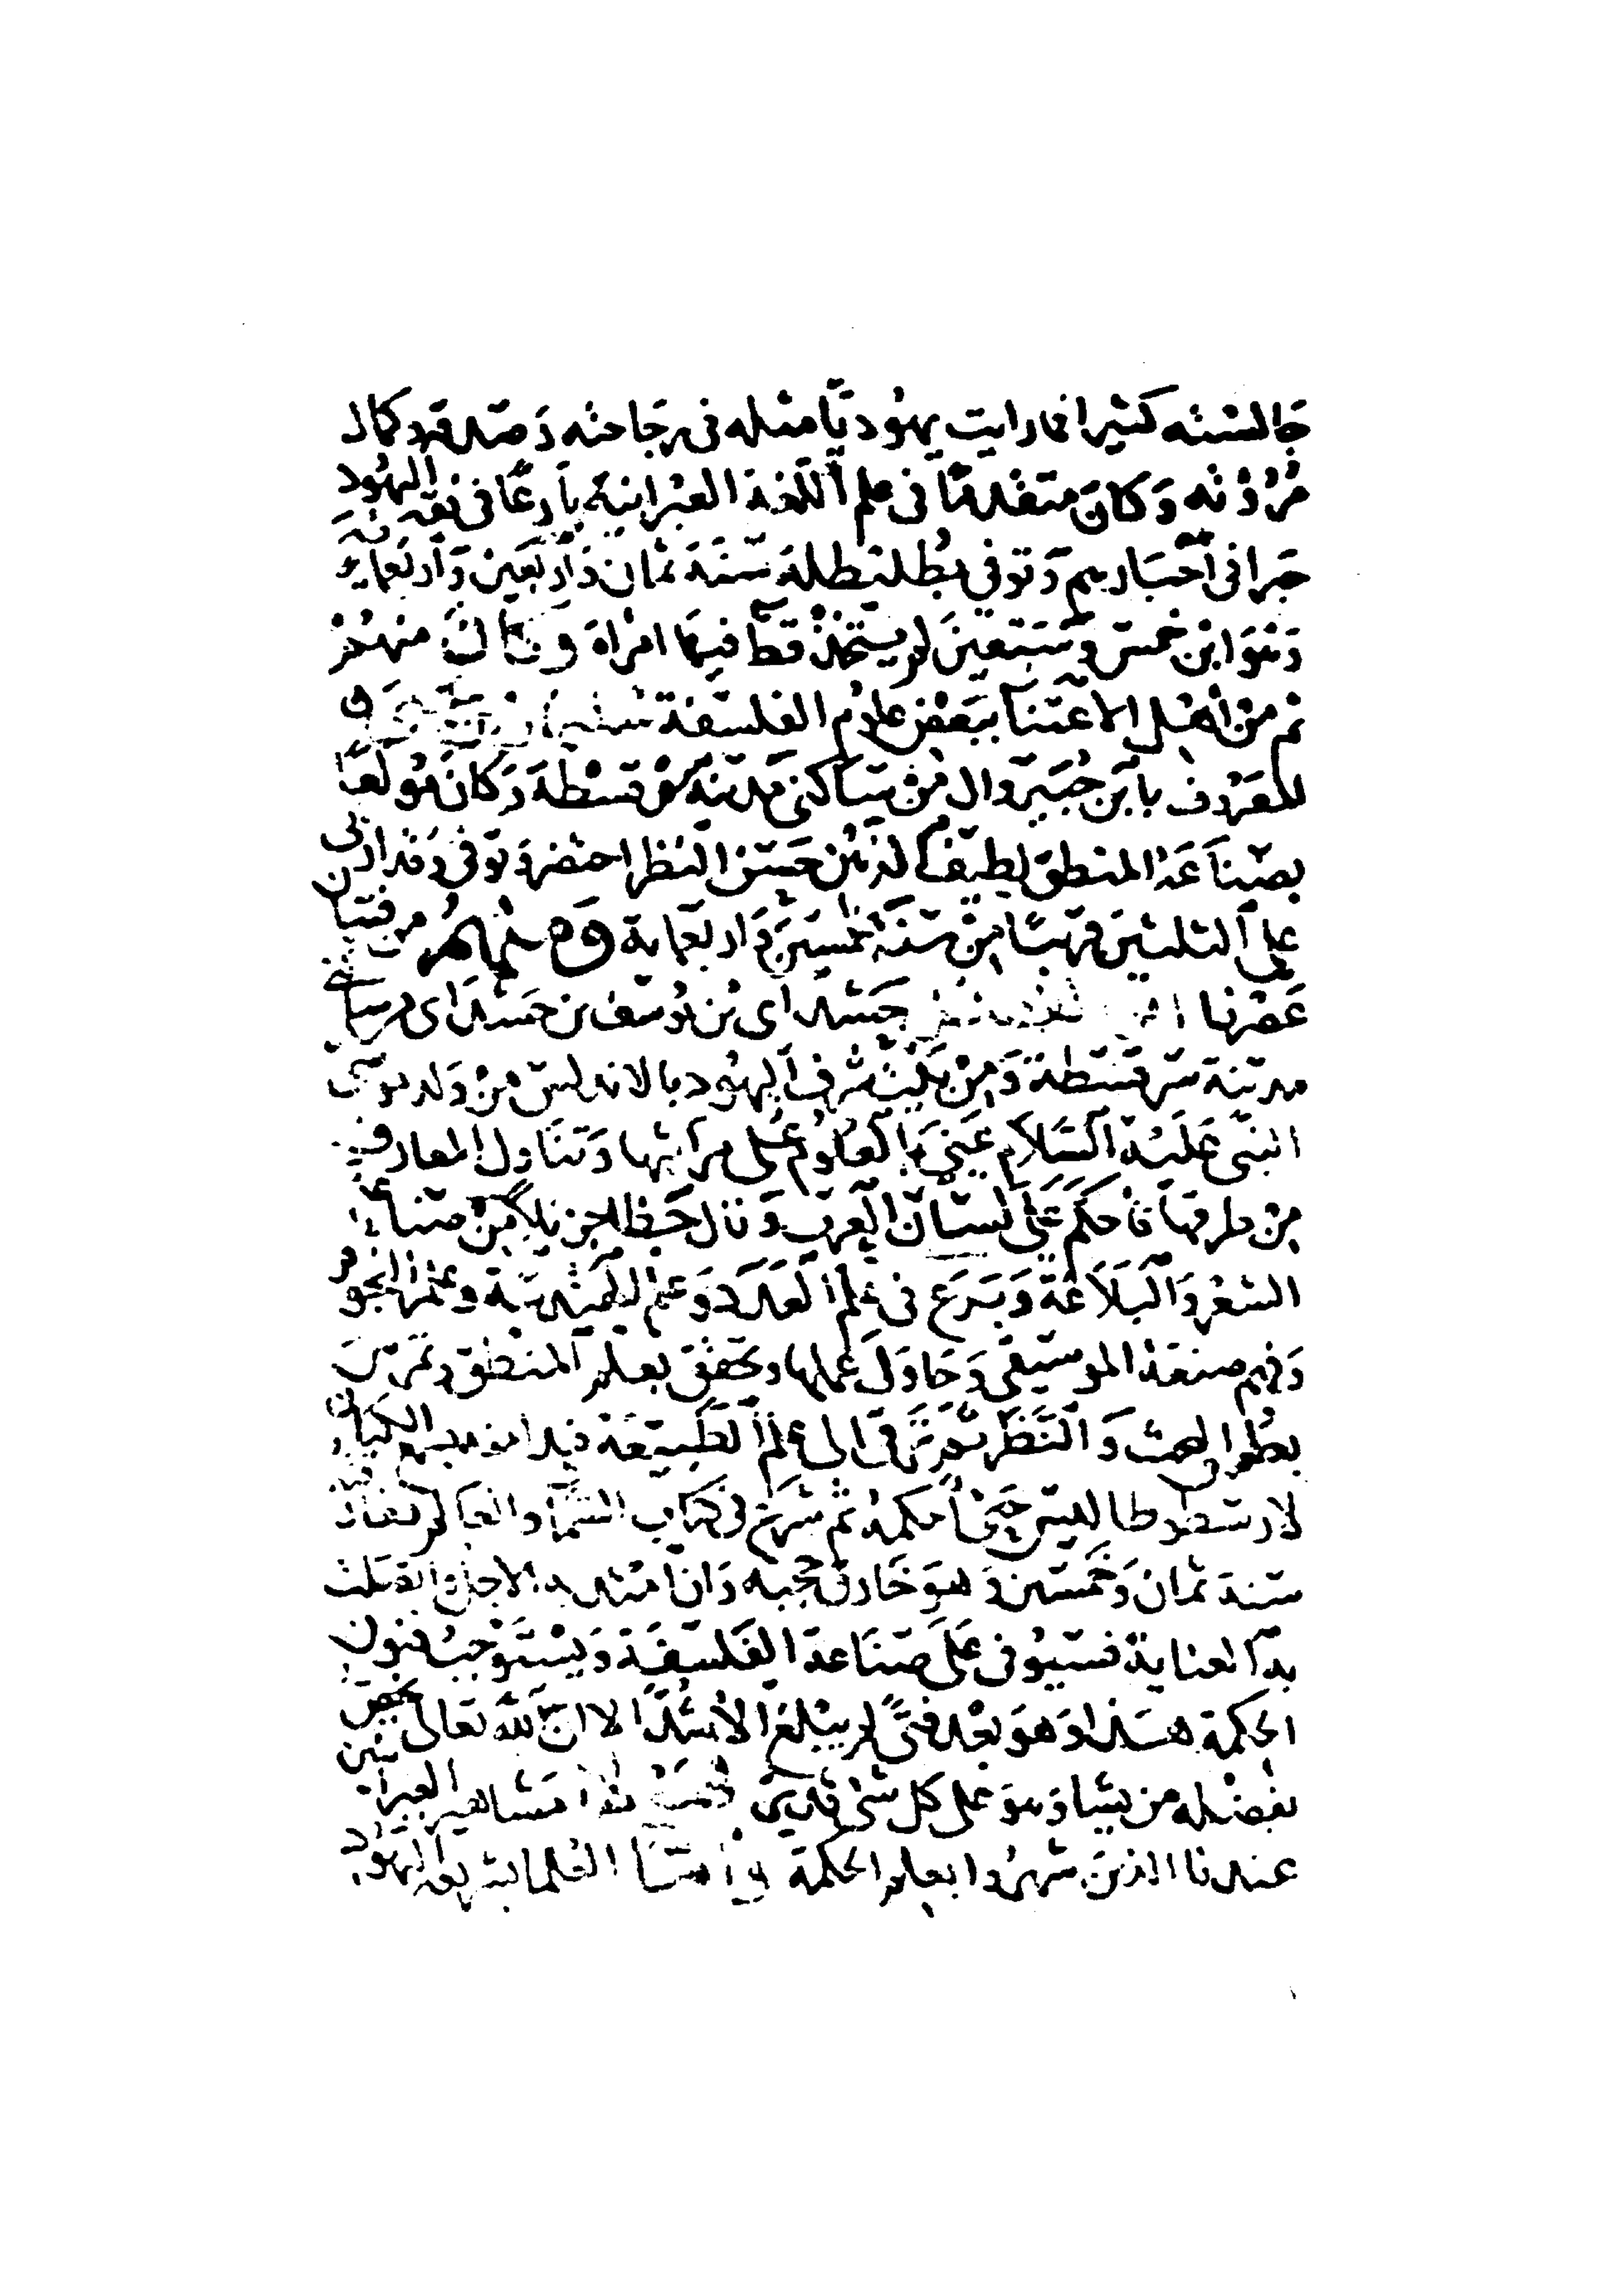 جالسته كثيرا فما رايت يهوديا مثله فى رجاحته وصدقه وكمال
مروءته وكان متقدما فى علم اللغة العبرانية بارعا فى فقه اليهود
حبرا فى احبارهم وتوفي بطليطلة سنة ثمان واربعين واربعماية
وهو ابن خمس وسبعين لم يتخذ قط فيها امراة وكان منهم
ثم من اهل الاعتنا ببعض علوم الفلسفة سليمان بن يحيى
المعروف بابن جبيروال من ساكنى مدينة سرقسطة وكان مولعا
بصناعة المنطق لطيف الذهن حسن النظر احتضر وتوفى وقد اربى
على الثلثين قريبا من سنة خمسين واربعماية ومنهم من فتيان
عصرنا حسداى بن يوسف بن حسداى من ساكنى
مدينة سرقسطة ومن بيت شرف اليهود بالاندلس من ولد موسى
النبى عليه السلام عنى بالعلوم على مراتبها وتناول المعارف
من طرقها فاحكم علم لسان العرب ونال حظا جزيلا من صناعة
الشعر والبلاغة وبرع فى علم العدد وعلم الهندسة وعلم النجوم
وفهم صنعة الموسيقى وحاول عملها وتحقق بعلم المنطق وتمرس
بطرق البحث والنظر ثم ترقى الى علم الطبيعة فبدا منه بسمع الكيان
لارسطوطاليس حتى احكمه ثم شرع فى كتاب السما والعالم
سنة ثمان وخمسين وهو خارق حجبه وان امتد به الاجل واتصلت
به العناية فسيوفى على صناعة الفلسفة ويستوجب فنون
الحكمة هذا وهو بعد فتى لم يبلغ الاشد الا ان الله تعالى يخص
بفضله من يشا وهو على كل شى قدير مشاهير العبرانيين
عندنا الذين شهروا بعلم الحكمة العلما بشريعة اليهود